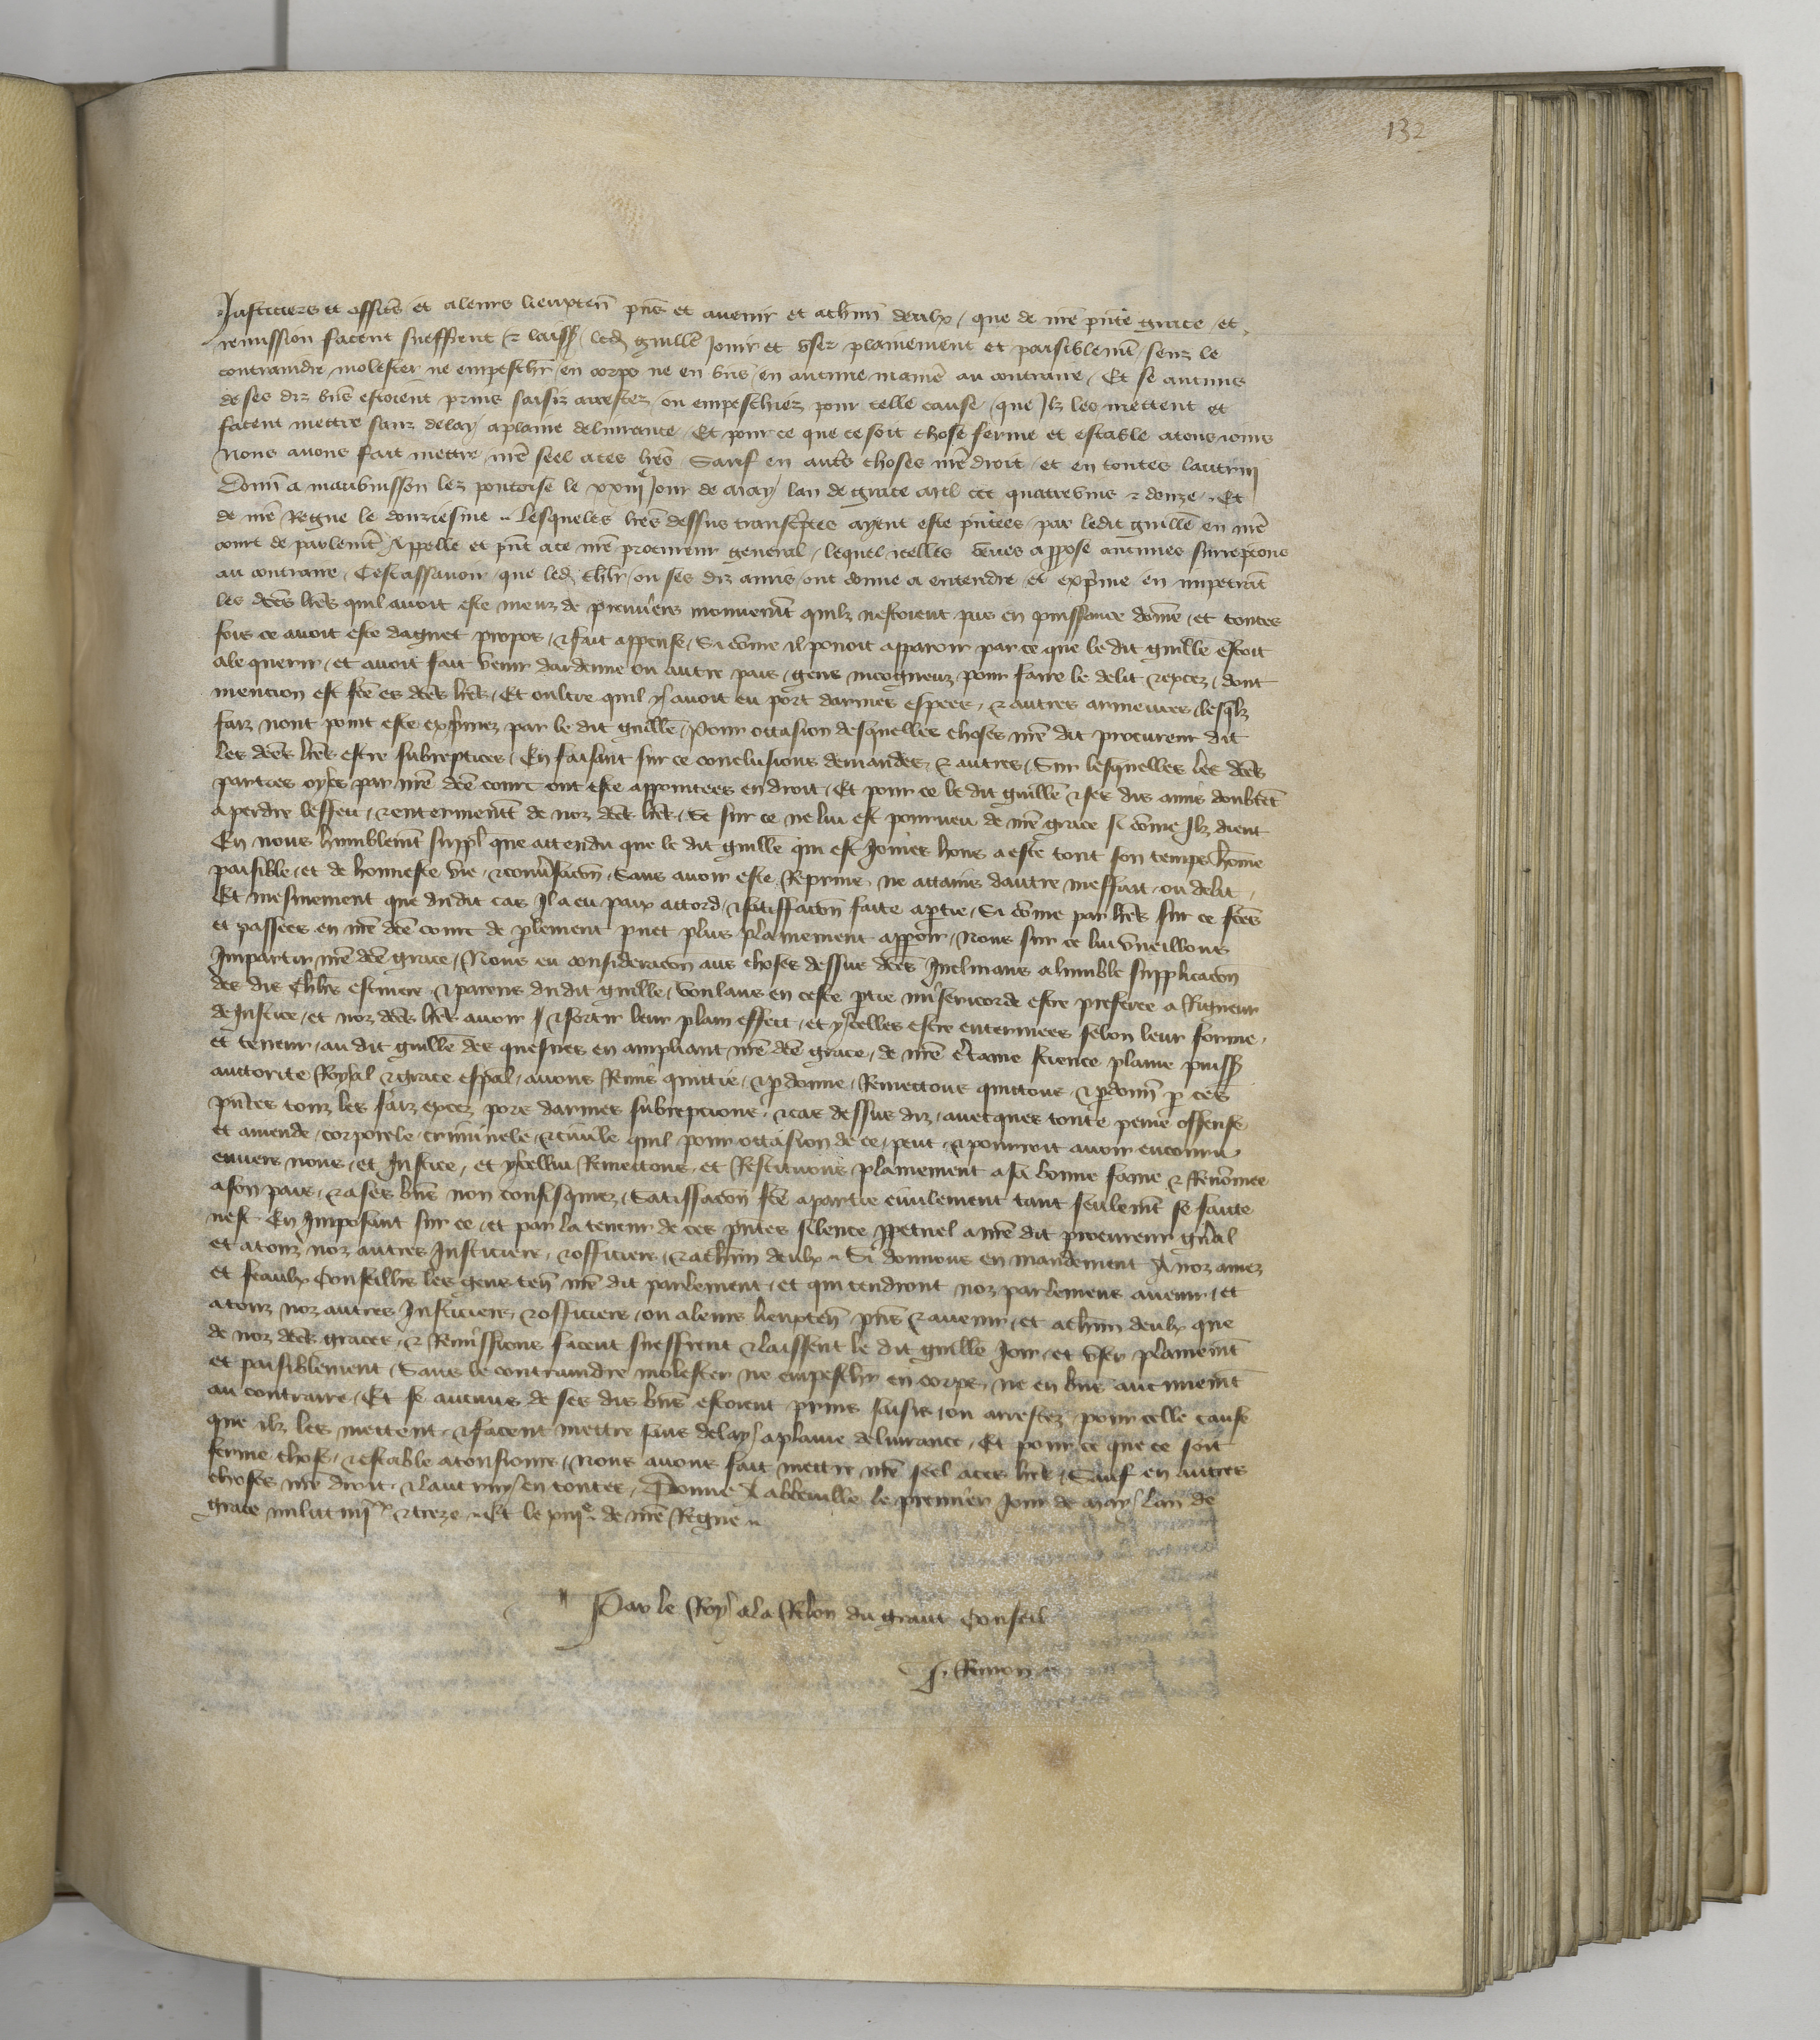 132
Justiciers et offic̃rs et a leurs lieuxten̄ pñs et avenir et a chũn deulx que de nr̃e pñte grace et
remission facent sueffrent & laissẽ led̃ guillẽ joir et user plainement et paisiblemẽt senz le
contraindre molester ne empeschr̃ en corps ne en biẽs en aucune manie͂ au contraire Et se aucuns
de ses diz biẽs estoient prins saisiz arrestez ou empeschiez pour celle cause que Ilz les mettent et
facent mettre sanz delay a plaine delivrance Et pour ce que ce soit chose ferme et estable a tous iours
Nous avons fait mettre nr̃e seel a ces lr̃es Sauf en autr̃s choses nr̃e droit et en toutes lautruj
Donn̄ a maubuisson lez pontoise le xxiiije Jour de may lan de grace mil ccc quatrevins & douze Et
de nr̃e Regne le douziesme Lesqueles lr̃es dessus transcr̃ptes ayent este pñtees par ledit guillẽ en nr̃e
court de parlemẽt Appelle et pñt a ce nr̃e procureur general lequel icelles veues appose aucunes surrepcõns
au contraire Cestassavoir que led̃ chlr̃ ou ses diz amis ont donne a entendre et exp̃me en impetrãt
les dc̃es lr̃es quil avoit este meuz de p̃miers mouvemẽt quilz nestoient pas en puissance dõme et toutes
fois ce avoit este daguet propos & fait appense Si cõme il povoit apparoir par ce que le dit guillẽ estoit
ale querir et avoit fait venir dardenne ou autre pais gens incogneuz pour faire le delit & excez dont
mention est fc̃e es dc̃es lr̃es Et oultre quil y avoit eu port darmes espees & autres armeures lesq̃lz
faiz nont point este exp̃mez par le dit guillẽ Pour occasion desquelles choses nr̃e dit procureur dit
les dc̃es lr̃es estre subreptices En faisant sur ce conclusions demandes & autres Sur lesquelles les dc̃es
parties oyes par nr̃e dc̃e court ont este appointees en droit Et pour ce le dit guillẽ & ses dis amis doubtẽt
a perdre leffeu & enterinemẽt de noz dc̃es lr̃es Se sur ce ne lui est pourveu de nr̃e grace si cõme Ilz dient
En nous humblemẽt suppl̃ que attendu que le dit guillẽ qui est Joines hons a este tout son temps hõme
paisible et de honneste vie & conv̾sacõn Sans avoir este Reprins ne attains dautre meffait ou delit
Et mesmement que dudit cas Il a eu paix accord & satiffacõn faite a p̃tie Si cõme par lr̃es sur ce fc̃es
et passees en nr̃e dc̃e court de p̃lement puet plus plainement apparoir Nous sur ce lui vueillons
Impartir nr̃e dc̃e grace Nous eu consideracõn aus choses dessus dc̃es Inclinans a lumble supplicacõn
des dis chlr̃s escuiers & parens dudit guillẽ voulans en ceste p̃tie mis̾ericorde estre preferee a Rigueur
de Justice et noz dc̃es lr̃es avoir & sortir leur plain effect et ycelles estre enterinees selon leur forme
et teneur au dit guillẽ des quesnes en ampliant nr̃e dc̃e grace de nr̃e c̾taine science plaine puissẽ
auctorite Royal & grace esp̃al avons Remis quittie & p̃donne Remettons quittons & p̃donn̄ p̃ ces
pñtes touz les faiz excez pors darmes subrepcions & cas dessus diz avecques toute peine offense
et amende corporele criminele & civile quil pour occasion de ce peut & pourroit avoir encouru
envers nous et Justice et ycellui Remettons et Restituons plainement a sa bonne fame & Renõmee
a son pais & a ses biẽs non confisquiez Satisfacõn fc̃e a partie civilement tant seulemẽt se faite
nest En Imposant sur ce et par la teneur de ces pñtes silence p̃petuel a nr̃e dit procureur gñal
et a touz noz autres Justiciers & officiers & a chũn deulx Si donnons en mandement A noz amez
et feaulx Conseillrs les gens ten̄ nr̃e dit parlement et qui tendront noz parlemens avenir et
a touz noz autres Justiciers & officiers ou a leurs lieuxten̄ pñs & avenir et a chũn deulx que
de noz dc̃es graces & Remissions facent sueffrent & laissent le dit guillẽ Joir et user plainemẽt
et paisiblement Sans le contraindre molester ne empeschr̃ en corps ne en biẽs aucunemẽt
au contraire Et se aucuns de ses dis biẽs estoient prins saisis ou arrestez pour celle cause
que ilz les mettent & facent mettre sans delay a plaine delivrance Et pour ce que ce soit
ferme chose & estable a tousiours Nous avons fait mettre nr̃e seel a ces lr̃es Sauf en autres
choses nr̃e droit & lautruy en toutes Donne A abbeville le premier Jour de may lan de
grace mil ccc iiijxx & treze Et le xiije de nr̃e Regne
Par le Roy a la Relõn du grant Conseil